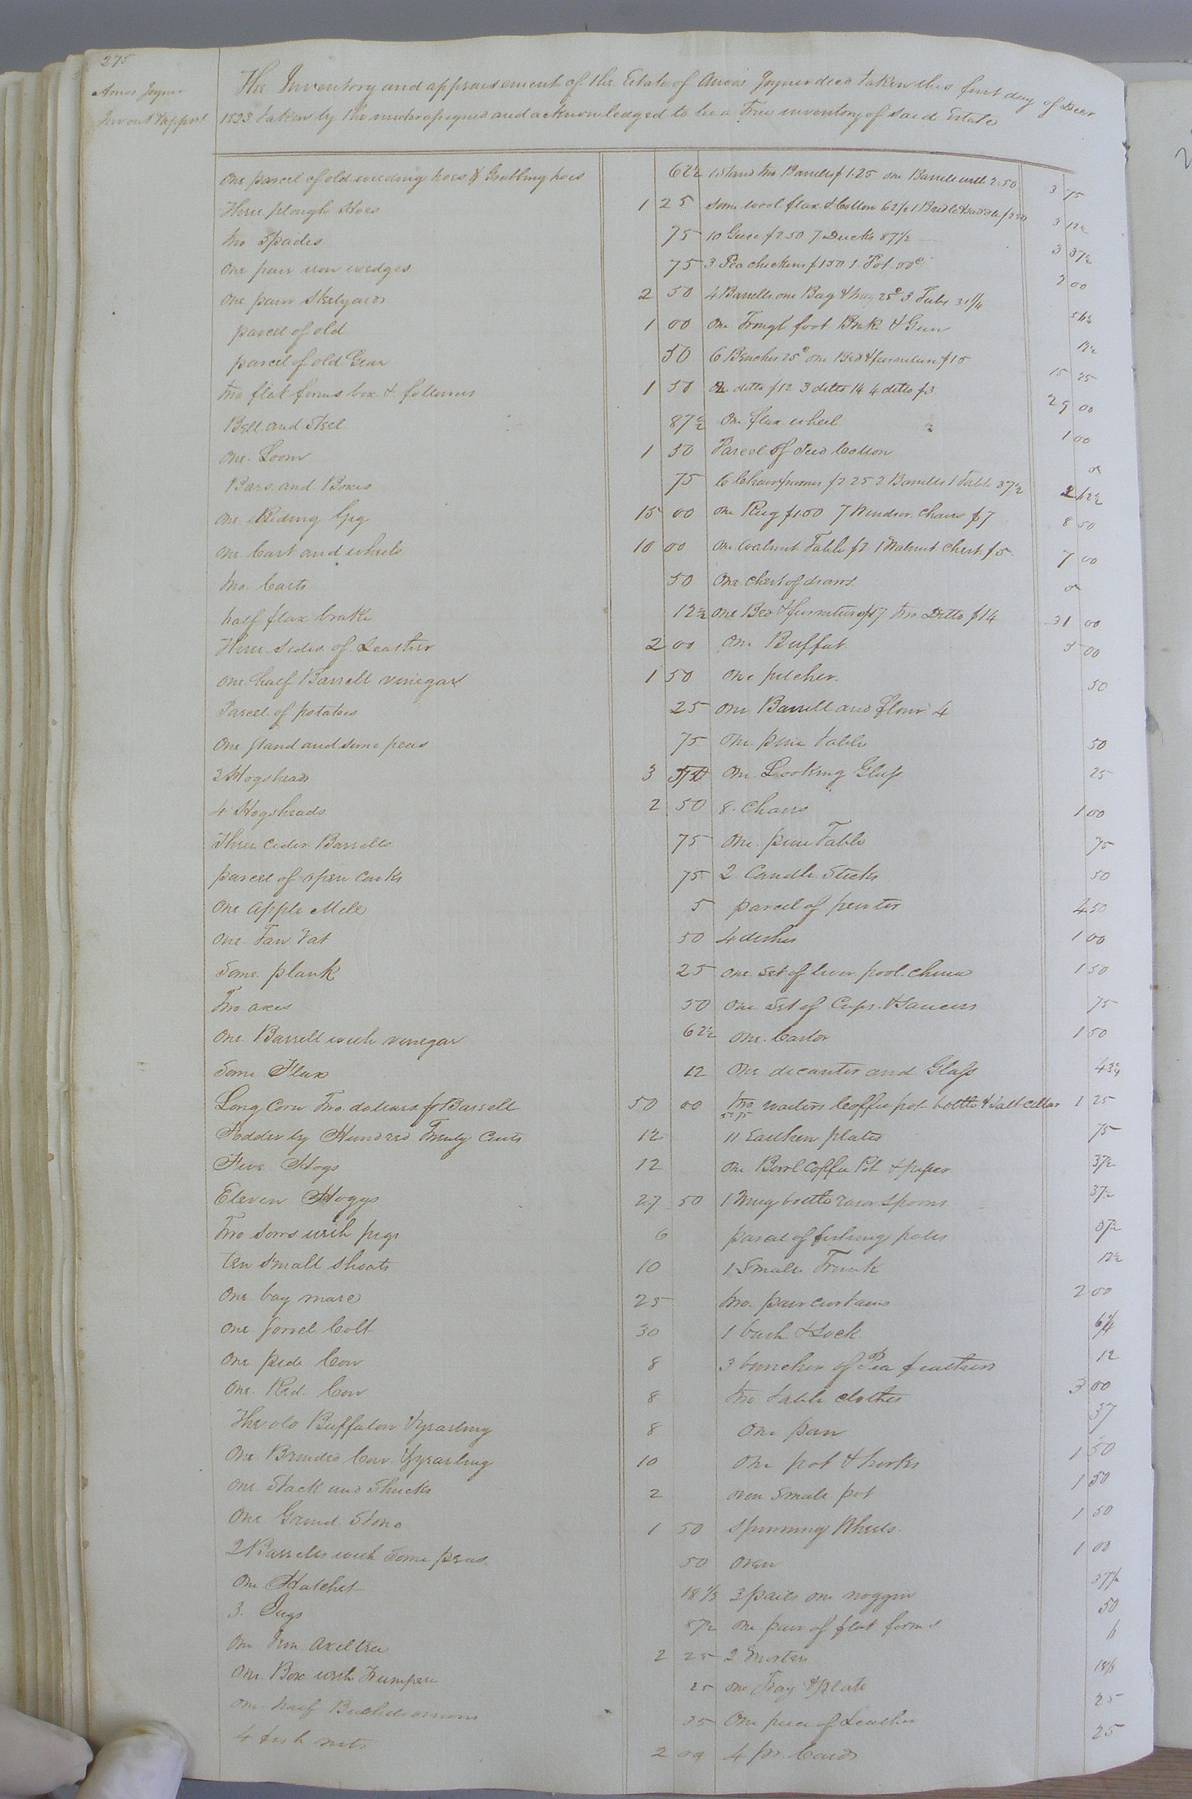 275
Amos Joyner
Invent & appst
The Inventory and appraisement of the Estate of Amos Joyner decd taken this first day of Decr
1833 taken by the undersigned and acknowledged to be a True inventory of said Estate
One parcel of old weeding hoes & Grubbing hoes 62½
Three plough Hoes 1 25
two Spades 75
One pair iron wedges 75
One pair Steelyards 2 50
parcel of old 1 00
parcel of old Gear 50
two flat forms box & 1 50
Bell and Steel 87½
One Loom 1 50
Bars and Boxes 75
One Riding Gig 15 00
One Cart and wheels 10 00
two Carts 50
half flax brake 12½
Three Sides of Leather 2 00
One half Barrell vinegar 1 50
Parcel of potatoes 25
One Stand and some peas 75
3 Hogsheads 3
4 Hogsheads 2 50
Three Cider Barrells 75
parcel of open Casks 75
One Apple Mill 5
One Tan Vat 50
Some plank 25
Two axes 50
One Barrell with vinegar 62½
Some Flax 12
Long Corn two dollars pr Barrell 50 00
Fodder by Hundred Twenty Cents 12
Five Hogs 12
Eleven Hoggs 27 50
Two Sows with pigs 6
ten small Shoats 10
One bay mare 25
One sorrel Colt 30
One pide Cow 8
One Red Cow 8
The old Buffalow & yearling 8
One Brindled Cow & yearling 10
One Stack and Shucks 2
One Grind Stone 1 50
2 Barrells with Some peas 50
One Hatchet 18⅓
3 Jugs 87½
One Iron Axeltree 2 25
One Box with 25
One half Bushel onions 25
4 fish nets 2 00
1 Stand two Barrells $1.25 one Barrell with 2.50 3 75
Some wool flax & Cotton 62½ 1 Bridle & 3 12½
10 Geese $2.50 7 Ducks 87½ 3 37½
3 Pea chickens $1.50 1 Pot 50c 2 00
4 Barrells one Bag & 25c 3 Tubs 31¼ 56¼
One Trough foot & Gun 12½
6 25c one Bed & furniture $15 15 25
One ditto $12 3 ditto 14 4 ditto $3 29 00
One flax wheel 1 00
Parcel of Seed Cotton
6 Chair frames 25 2 Barrells 1 Table 37½ 2 62½
One Rug $1.50 7 Windsor chairs $7 8 50
One walnut Table $2 1 Walnut Chest $5 7 00
One chest of draws
One Bed & furniture $17 two Ditto $14 31 00
One Buffat 5 00
One pitcher 50
One Barrell and flour 4
One pine table 50
One Looking Glass 25
8 Chairs 1 00
One pine Table 75
2 Candle Sticks 50
parcel of pewter 4 50
4 dishes 1 00
One Set of liver pool china 1 50
One Set of Cups & Saucers 75
One Castor 1 50
One decanter and Glass 43¾
two waiters Coffee pot bottle & Salt cellar 1 25
11 Earthen plates 75
One Bowl Coffee Pot & paper 37½
1 Mug bottle razor Spoons 37½
parcel of fishing poles 37½
1 Small Trunk 12½
two pair curtains 2 00
1 & Lock 6¼
3 bunches of Pea feathers 12
two table cloths 3 00
One pan 37
One pot & hooks 1 50
one small pot 1 50
Spinning Wheels 1 50
Oven 1 00
3 pails one noggin 37½
One pair of flat forms 50
2 6
One Tray & plate 18¾
One piece of Leather 25
4 pr Cards 25